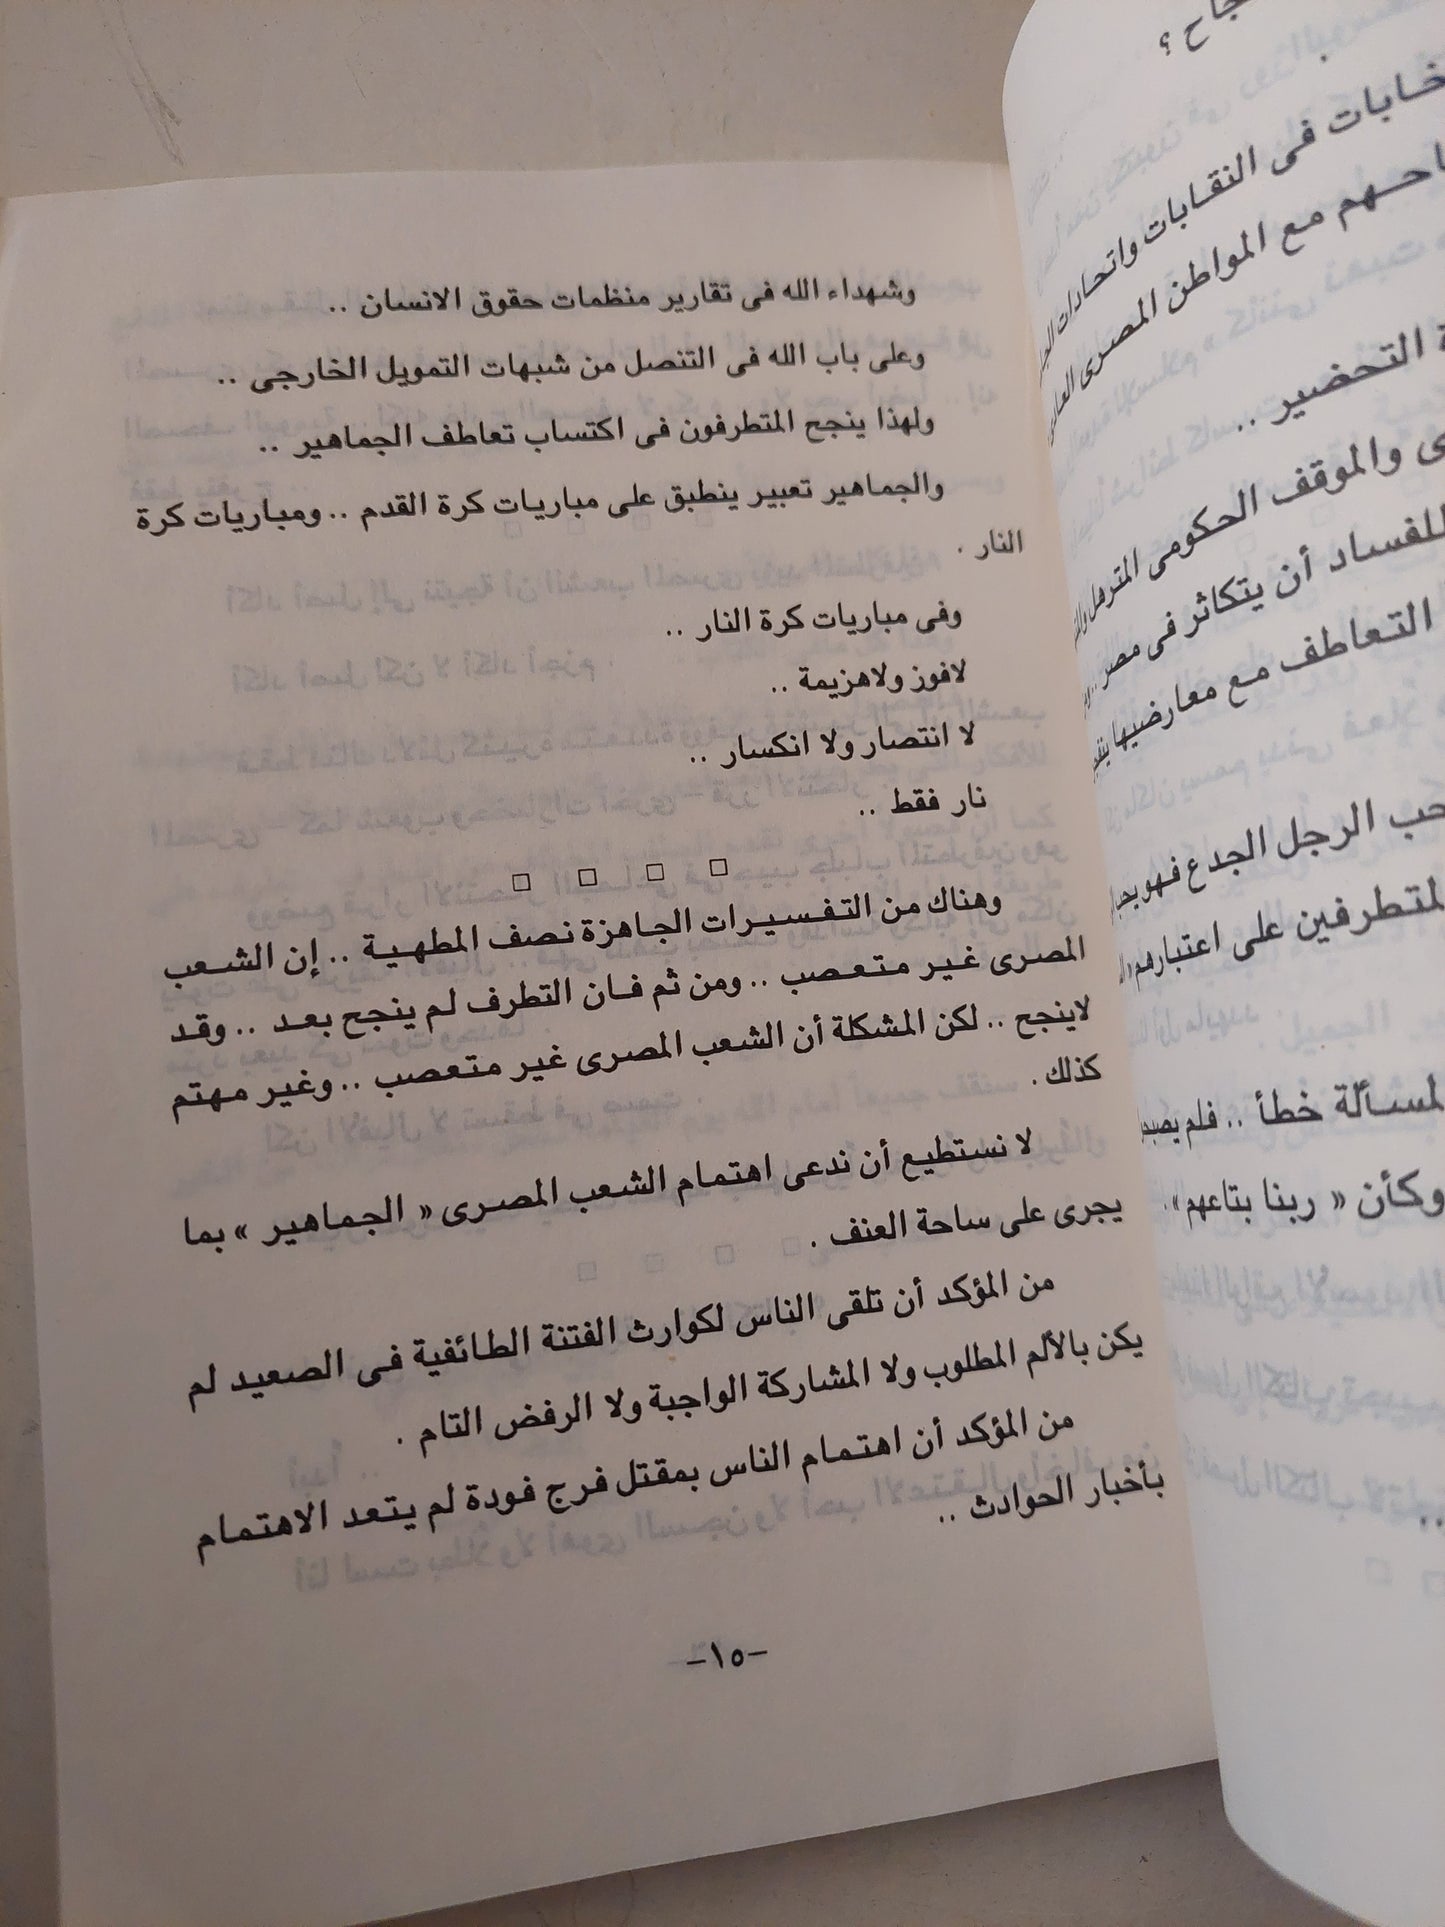 وشهداء الله فى تقارير منظمات حقوق الانسان ..
وعلى باب الله فى التنصل من شبهات التمويل الخارجى ..
ولهذا ينجح المتطرفون فى اكتساب تعاطف الجماهير ..
والجماهير تعبير ينطبق على مباريات كرة القدم .. ومباريات كرة
النار .
وفى مباريات كرة النار ..
لافوز ولاهزيمة ..
لا انتصار ولا انكسار ..
نار فقط ..
□ □ □ □
وهناك من التفسيرات الجاهزة نصف المطهية .. إن الشعب
المصرى غير متعصب .. ومن ثم فان التطرف لم ينجح بعد .. وقد
لاينجح .. لكن المشكلة أن الشعب المصرى غير متعصب .. وغير مهتم
كذلك .
لا نستطيع أن ندعى اهتمام الشعب المصرى « الجماهير » بما
يجرى على ساحة العنف .
من المؤكد أن تلقى الناس لكوارث الفتنة الطائفية فى الصعيد لم
يكن بالألم المطلوب ولا المشاركة الواجبة ولا الرفض التام .
من المؤكد أن اهتمام الناس بمقتل فرج فودة لم يتعد الاهتمام
بأخبار الحوادث ..
–١٥–
؟
فى النقابات واتحادات
مع المواطن المصرى
التحضير ..
والموقف الحكومى المترهل
للفساد أن يتكاثر فى مصر ..
التعاطف مع معارضيها
الرجل الجدع فهو
على اعتبارهم
خطأ .. فلم
وكأن « ربنا بتاعهم » .
..